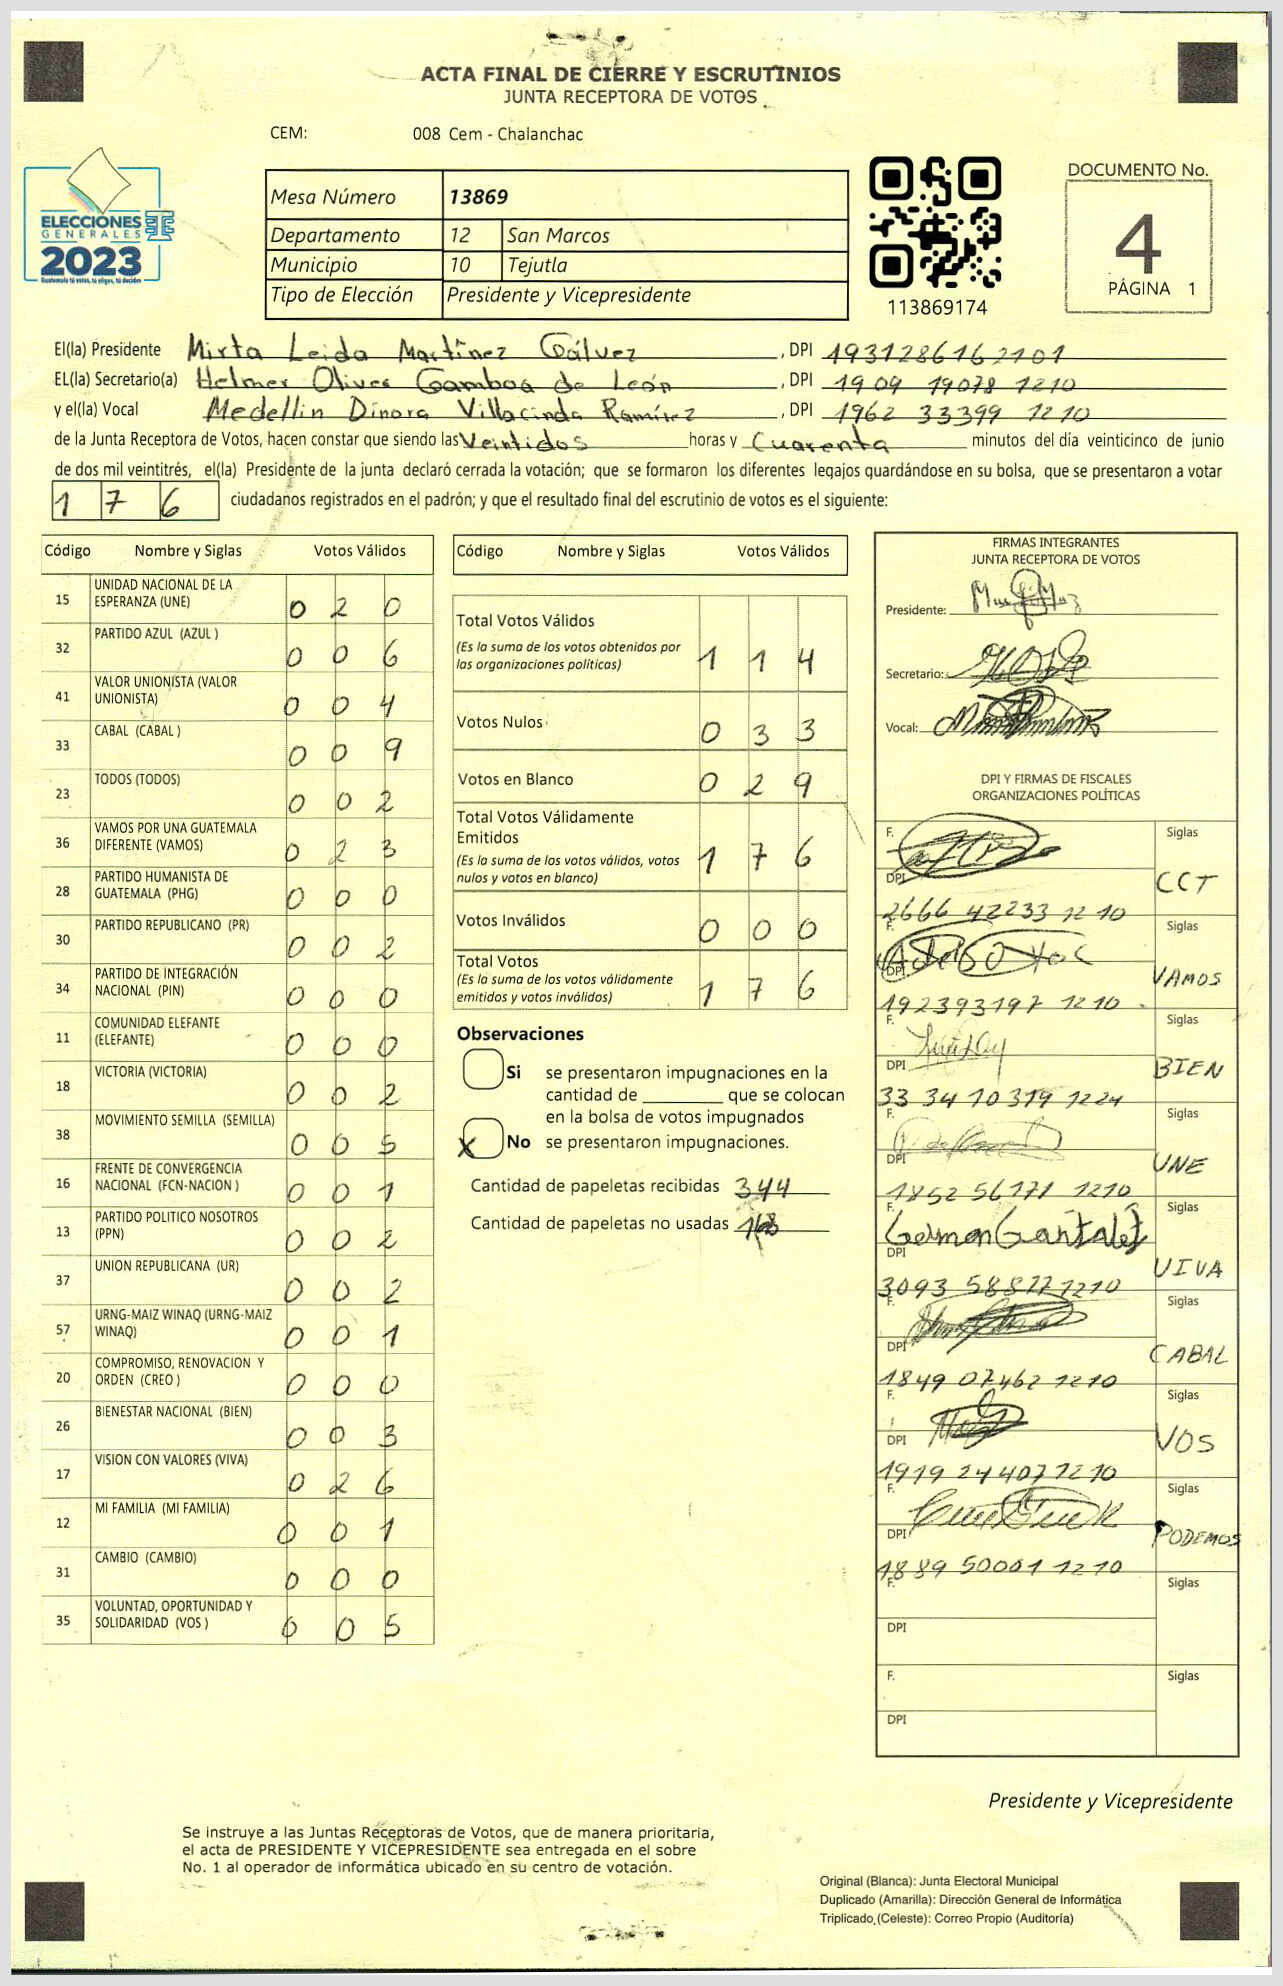 ACTA FINAL DE CIERRE Y ESCRUTINIOS
JUNTA RECEPTORA DE VOTOS
CEM: 008 Cem - Chalanchac
ELECCIONES
GENERALES
2023
Guatemala tú votas, tú eliges, tú decides
Mesa Número 13869
Departamento 12 San Marcos
Municipio 10 Tejutla
Tipo de Elección Presidente y Vicepresidente
113869174
DOCUMENTO No.
4
PÁGINA 1
El(la) Presidente Mirta Leida Martínez Gálvez , DPI 1931286162101
EL(la) Secretario(a) Helmer Oliver Gamboa de León , DPI 1909 19078 1210
y el(la) Vocal Medellin Dinora Villacinda Ramírez , DPI 1962 33399 1210
de la Junta Receptora de Votos, hacen constar que siendo las Veintidos horas y Cuarenta minutos del día veinticinco de junio
de dos mil veintitrés, el(la) Presidente de la junta declaró cerrada la votación; que se formaron los diferentes legajos guardándose en su bolsa, que se presentaron a votar
1 7 6 ciudadanos registrados en el padrón; y que el resultado final del escrutinio de votos es el siguiente:
Código Nombre y Siglas Votos Válidos
15 UNIDAD NACIONAL DE LA
ESPERANZA (UNE) 0 2 0
32 PARTIDO AZUL (AZUL ) 0 0 6
41 VALOR UNIONISTA (VALOR
UNIONISTA) 0 0 4
33 CABAL (CABAL ) 0 0 9
23 TODOS (TODOS) 0 0 2
36 VAMOS POR UNA GUATEMALA
DIFERENTE (VAMOS) 0 2 3
28 PARTIDO HUMANISTA DE
GUATEMALA (PHG) 0 0 0
30 PARTIDO REPUBLICANO (PR) 0 0 2
34 PARTIDO DE INTEGRACIÓN
NACIONAL (PIN) 0 0 0
11 COMUNIDAD ELEFANTE
(ELEFANTE) 0 0 0
18 VICTORIA (VICTORIA) 0 0 2
38 MOVIMIENTO SEMILLA (SEMILLA) 0 0 5
16 FRENTE DE CONVERGENCIA
NACIONAL (FCN-NACION ) 0 0 1
13 PARTIDO POLITICO NOSOTROS
(PPN) 0 0 2
37 UNION REPUBLICANA (UR) 0 0 2
57 URNG-MAIZ WINAQ (URNG-MAIZ
WINAQ) 0 0 1
20 COMPROMISO, RENOVACION Y
ORDEN (CREO ) 0 0 0
26 BIENESTAR NACIONAL (BIEN) 0 0 3
17 VISION CON VALORES (VIVA) 0 2 6
12 MI FAMILIA (MI FAMILIA) 0 0 1
31 CAMBIO (CAMBIO) 0 0 0
35 VOLUNTAD, OPORTUNIDAD Y
SOLIDARIDAD (VOS ) 0 0 5
Código Nombre y Siglas Votos Válidos
Total Votos Válidos
(Es la suma de los votos obtenidos por
las organizaciones políticas) 1 1 4
Votos Nulos 0 3 3
Votos en Blanco 0 2 9
Total Votos Válidamente
Emitidos
(Es la suma de los votos válidos, votos
nulos y votos en blanco) 1 7 6
Votos Inválidos 0 0 0
Total Votos
(Es la suma de los votos válidamente
emitidos y votos inválidos) 1 7 6
Observaciones
Si se presentaron impugnaciones en la
cantidad de ________ que se colocan
en la bolsa de votos impugnados
X No se presentaron impugnaciones.
Cantidad de papeletas recibidas 344
Cantidad de papeletas no usadas 168
FIRMAS INTEGRANTES
JUNTA RECEPTORA DE VOTOS
Presidente:
Secretario:
Vocal:
DPI Y FIRMAS DE FISCALES
ORGANIZACIONES POLÍTICAS
F. Siglas
DPI CCT
2666 42233 1210
F. Siglas
DPI VAMOS
192393197 1210
F. Siglas
DPI BIEN
33 34 10319 1224
F. Siglas
DPI UNE
1852 56171 1210
F. Siglas
DPI VIVA
3093 58877 1210
F. Siglas
DPI CABAL
1849 07462 1210
F. Siglas
DPI VOS
1919 24407 1210
F. Siglas
DPI PODEMOS
1889 50001 1210
F. Siglas
DPI
F. Siglas
DPI
Presidente y Vicepresidente
Se instruye a las Juntas Receptoras de Votos, que de manera prioritaria,
el acta de PRESIDENTE Y VICEPRESIDENTE sea entregada en el sobre
No. 1 al operador de informática ubicado en su centro de votación.
Original (Blanca): Junta Electoral Municipal
Duplicado (Amarilla): Dirección General de Informática
Triplicado (Celeste): Correo Propio (Auditoría)